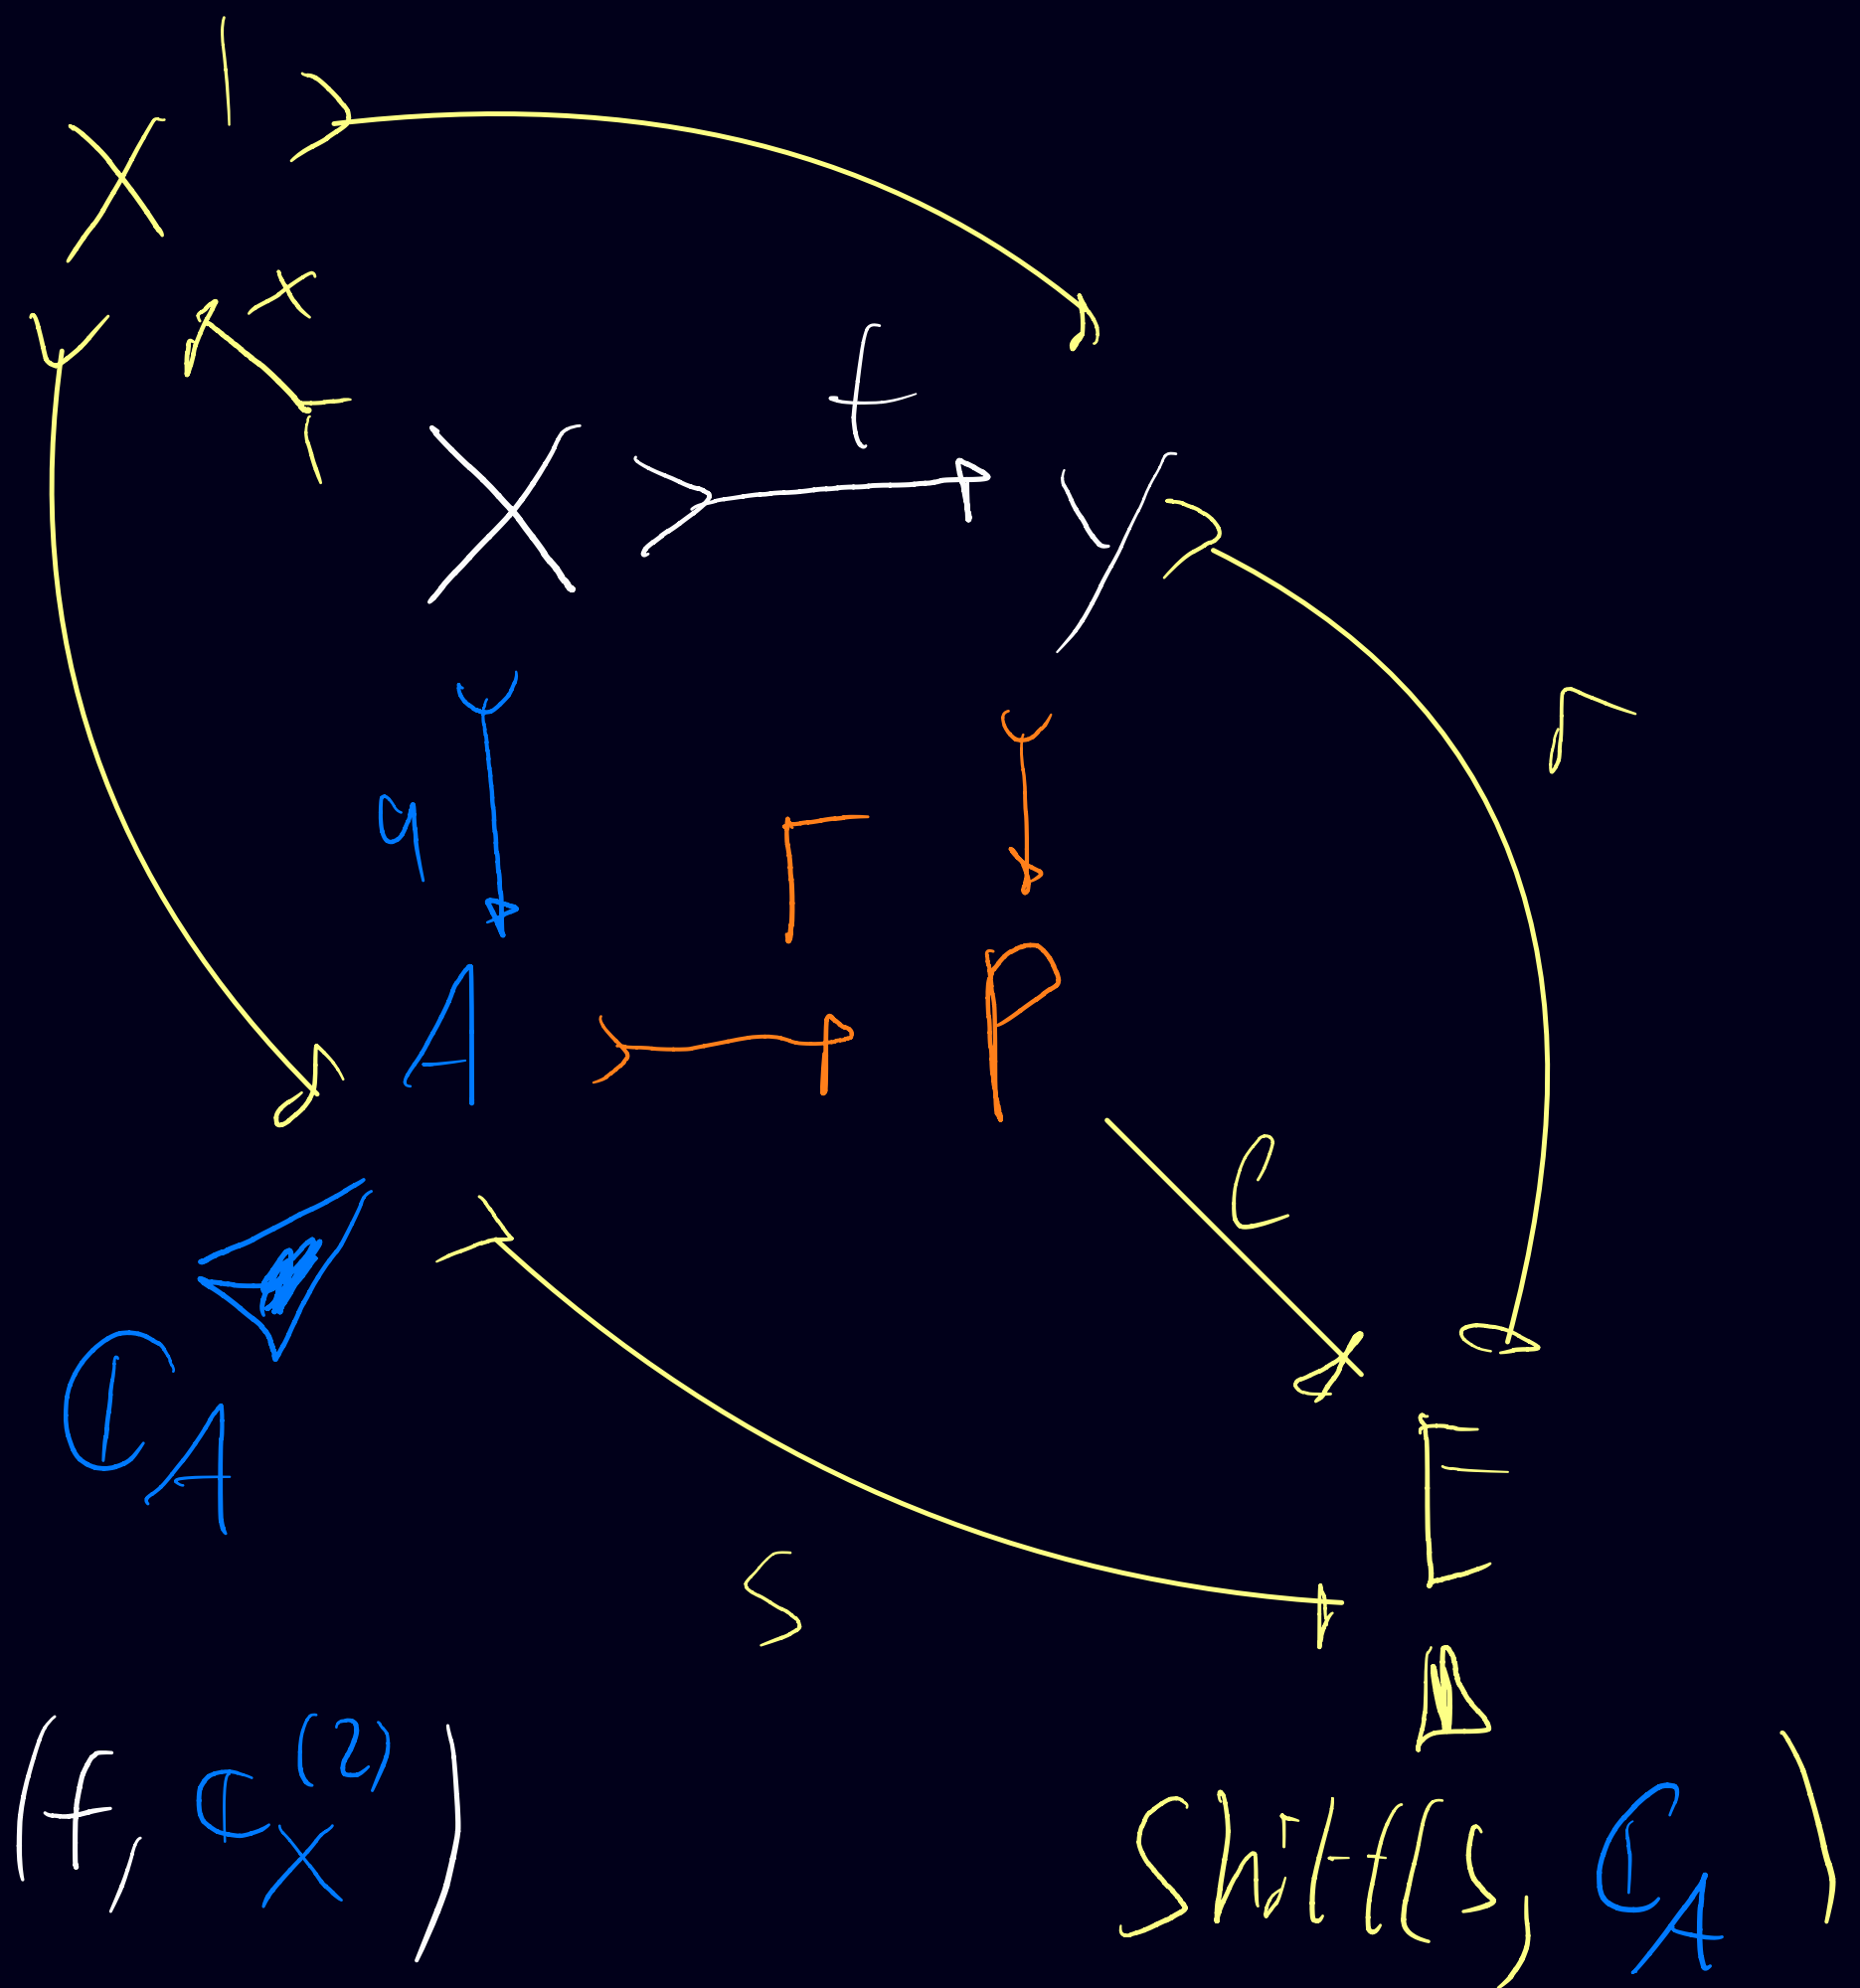 X'
x
t
X Y
r
a
A P
c
ℂ_A
E
s
(f, ℂ_X^(2)) Shift(s, ℂ_A)